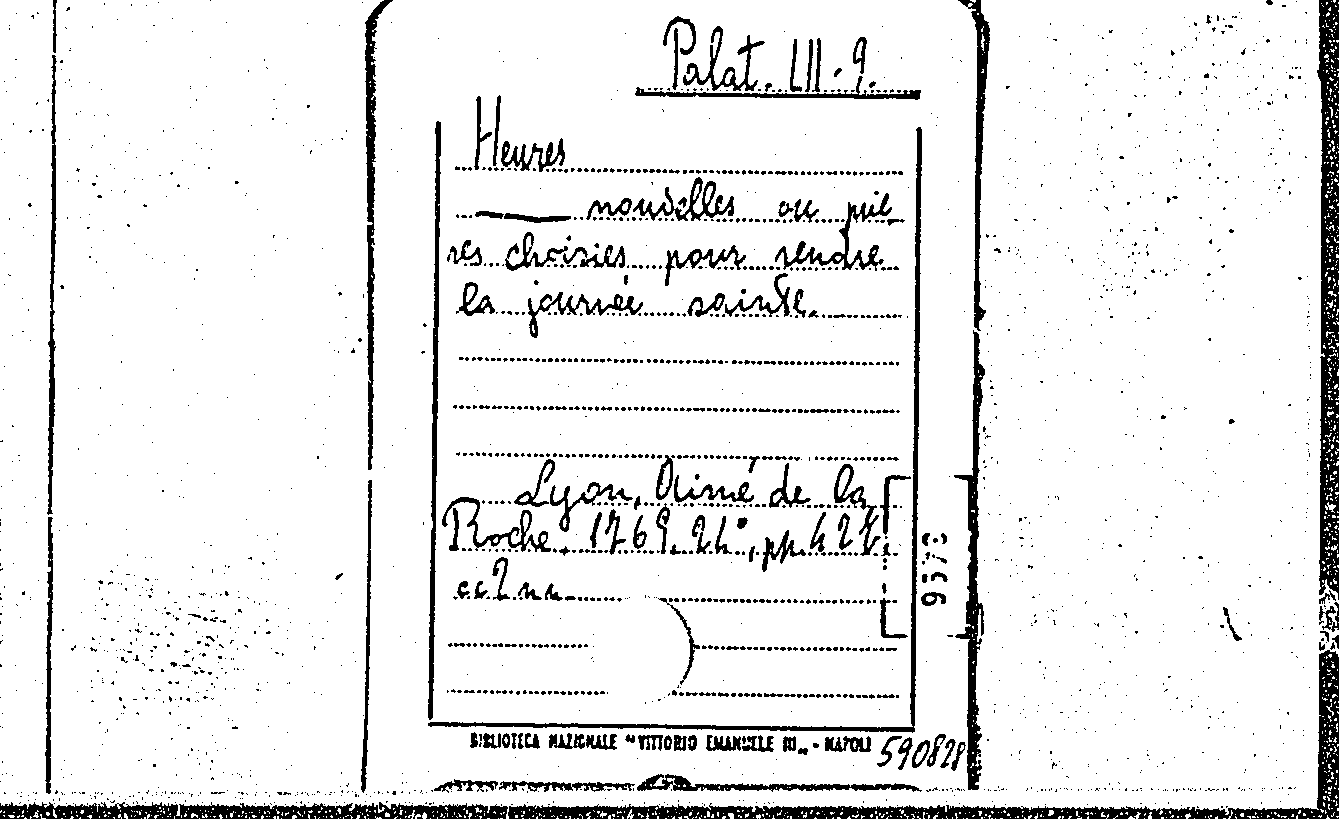 Palat. LII. 9.
Heures
nouvelles ou priè
res choisies pour rendre
la journée sainte.
Lyon, Aimé de la
Roche. 1769. 24°, pp. 427.
cc 2 nn.
9573
BIBLIOTECA NAZIONALE "VITTORIO EMANUELE III„ - NAPOLI
590828